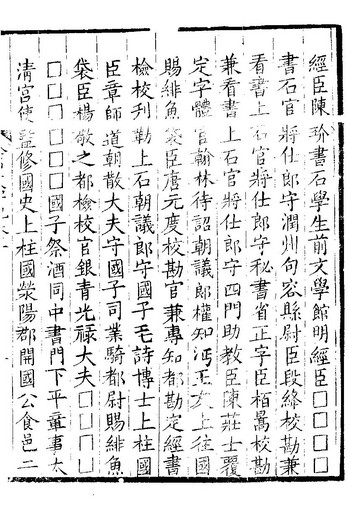 經臣陳玠書石學生前文學館明經臣□□□□
書石官將仕郎守潤州句容縣尉臣段絳校勘兼
看書上石官將仕郎守秘書省正字臣栢暠校勘
兼看書上石官將仕郎守四門助教臣陳莊士覆
定字體官翰林待詔朝議郎權知沔王友上柱國
賜緋魚袋臣唐元度校勘官兼專知都勘定經書
檢校刋勒上石朝議郎守國子毛詩博士上柱國
臣章師道朝散大夫守國子司業騎都尉賜緋魚
袋臣楊敬之都檢校官銀青光祿大夫□□□□
□□□□□□國子祭酒同中書門下平章事太
清宮使監修國史上柱國滎陽郡開國公食邑二